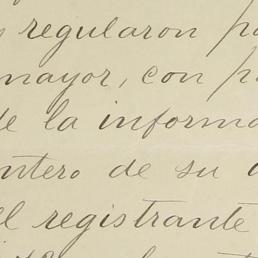 regularon
mayor, con
de la informa
ntero de su
el registrante